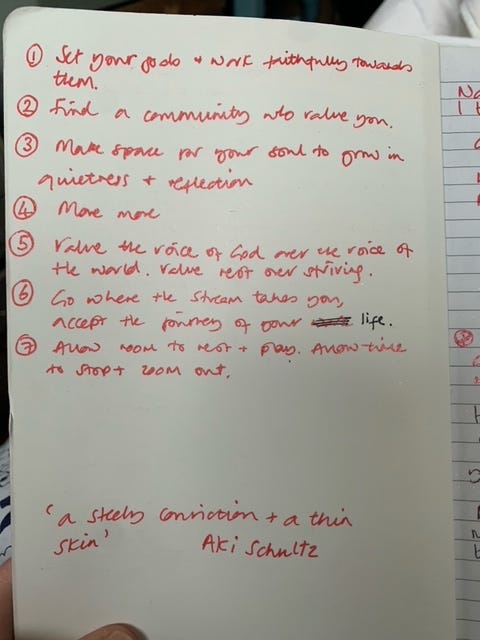 ① Set your goals + work faithfully towards
them.
② Find a community who value you.
③ Make space for your soul to grow in
quietness + reflection
④ Move more
⑤ Value the voice of God over the voice of
the world. Value rest over striving.
⑥ Go where the stream takes you,
accept the journey of your life.
⑦ Allow room to rest + play. Allow time
to stop + zoom out.
'a steely conviction + a thin
skin' Aki Schultz